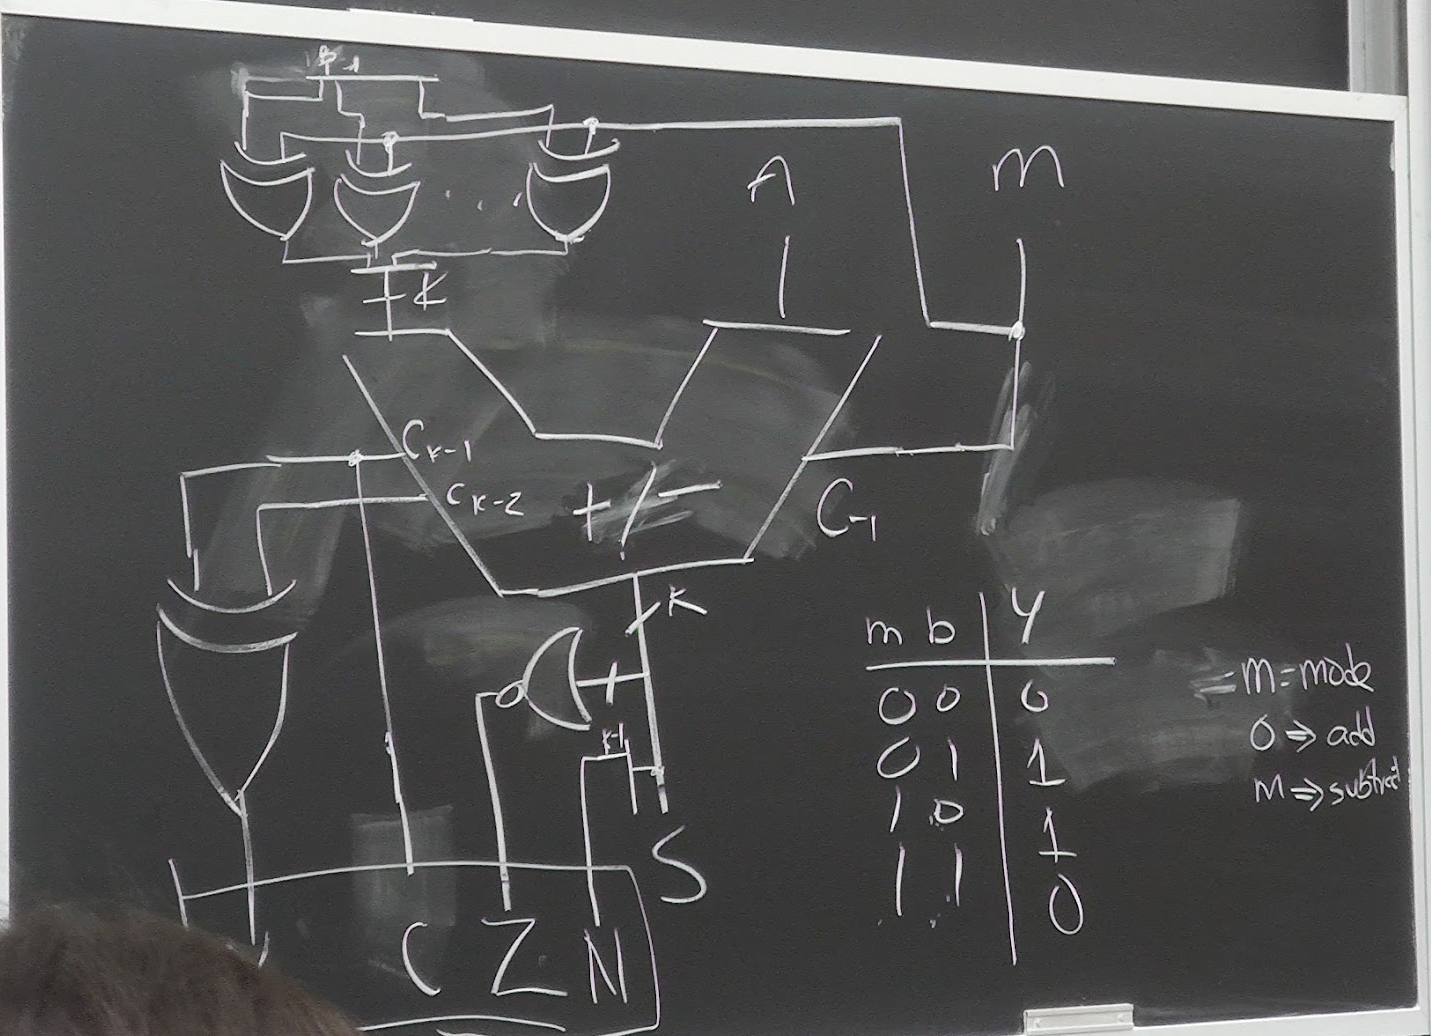 A
M
K
C K-1
C K-2
+/-
C-1
K
K-1
S
C Z N
m b y
0 0 0
0 1 1
1 0 1
1 1 0
M=mode
0 ⇒ add
M ⇒ subtract